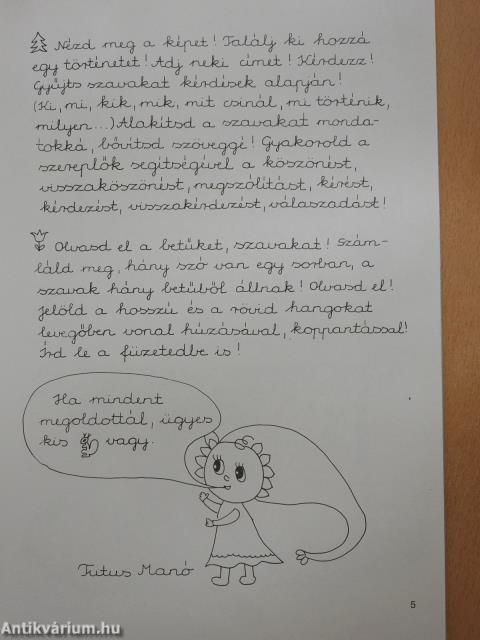 Nézd meg a képet! Találj ki hozzá
egy történetet! Adj neki címet! Kérdezz!
Gyűjts szavakat kérdések alapján!
(Ki, mi, kik, mik, mit csinál, mi történik,
milyen...) Alakítsd a szavakat monda-
tokká, bővítsd szöveggé! Gyakorold a
szereplők segítségével a köszönést,
visszaköszönést, megszólítást, kérést,
kérdezést, visszakérdezést, válaszadást!
Olvasd el a betűket, szavakat! Szám-
láld meg, hány szó van egy sorban, a
szavak hány betűből állnak! Olvasd el!
Jelöld a hosszú és a rövid hangokat
levegőben vonal húzásával, koppantással!
Írd le a füzetedbe is!
Ha mindent
megoldottál, ügyes
kis vagy.
Tutus Manó
5
Antikvárium.hu